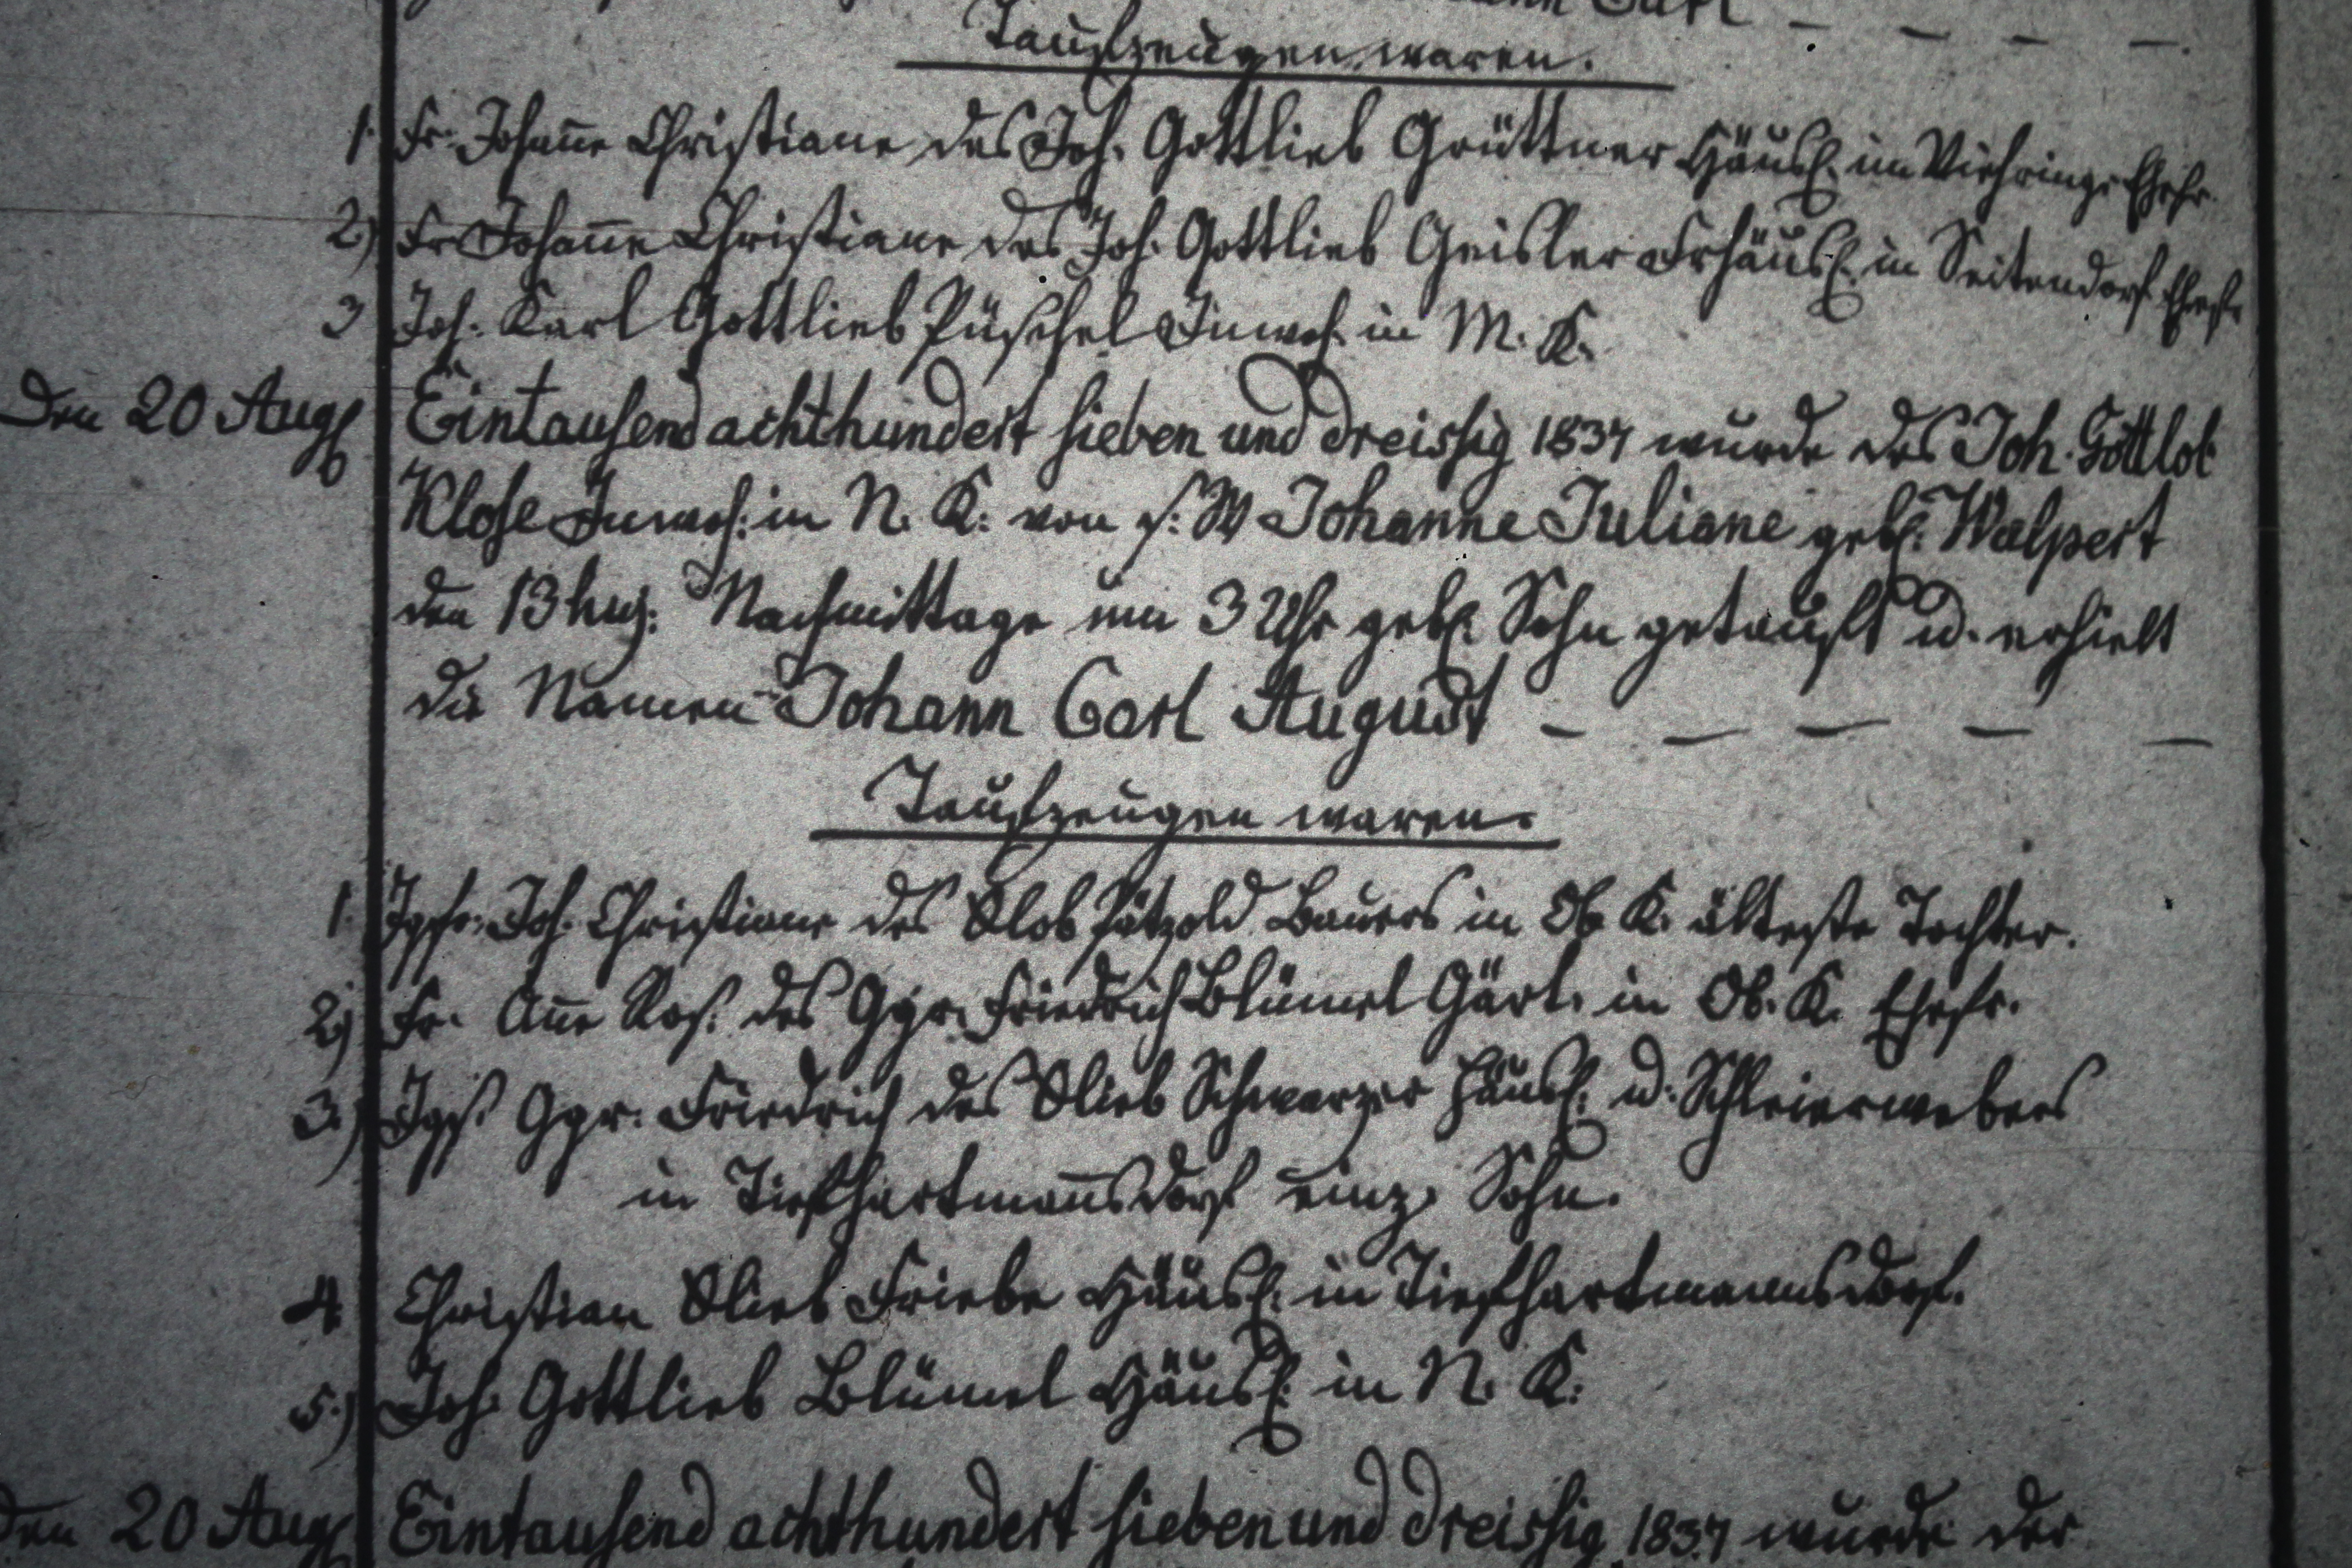 Carl — — — —.
Taufzeugen waren.
1. Fr. Joha̅ne Christiane des Joh. Gottlieb Grüttner Häusl. im Viehringe Ehefr.
2) Fr Joha̅ne Christiane des Joh. Gottlieb Geisler Frhäusl. in Seitendorf Ehefr
3 Joh. Karl Gottlieb Püschel Inwoh. in M. K.
Den 20 Aug Eintausend achthundert sieben und dreissig 1837 wurde des Joh. Gottlob
Klose Inwoh: in N. K: von s. W Johanne Juliane geb. Walpert
den 13 huj: Nachmittage um 3 Uhr geb. Sohn getauft u. erhielt
die Namen Johann Carl August — — — — —
Taufzeugen waren.
1. Jgfr. Joh. Christiane des Glob Pätzold Bauers in Ob K. älteste Tochter.
2) Fr. A̅ne Ros. des Ggr. Friedrich Blümel Gärt. in Ob. K. Ehefr.
3.) Jgs. Ggr. Friedrich des Glieb Schwarzer Häusl. u. Schleierwebers
in Tiefhartma̅nsdorf einz. Sohn.
4. Christian Glieb Friebe Häusl. in Tiefhartmannsdorf.
5.) Joh. Gottlieb Blümel Häusl. in N. K:
Den 20 Aug Eintausend achthundert sieben und dreissig 1837 wurde der